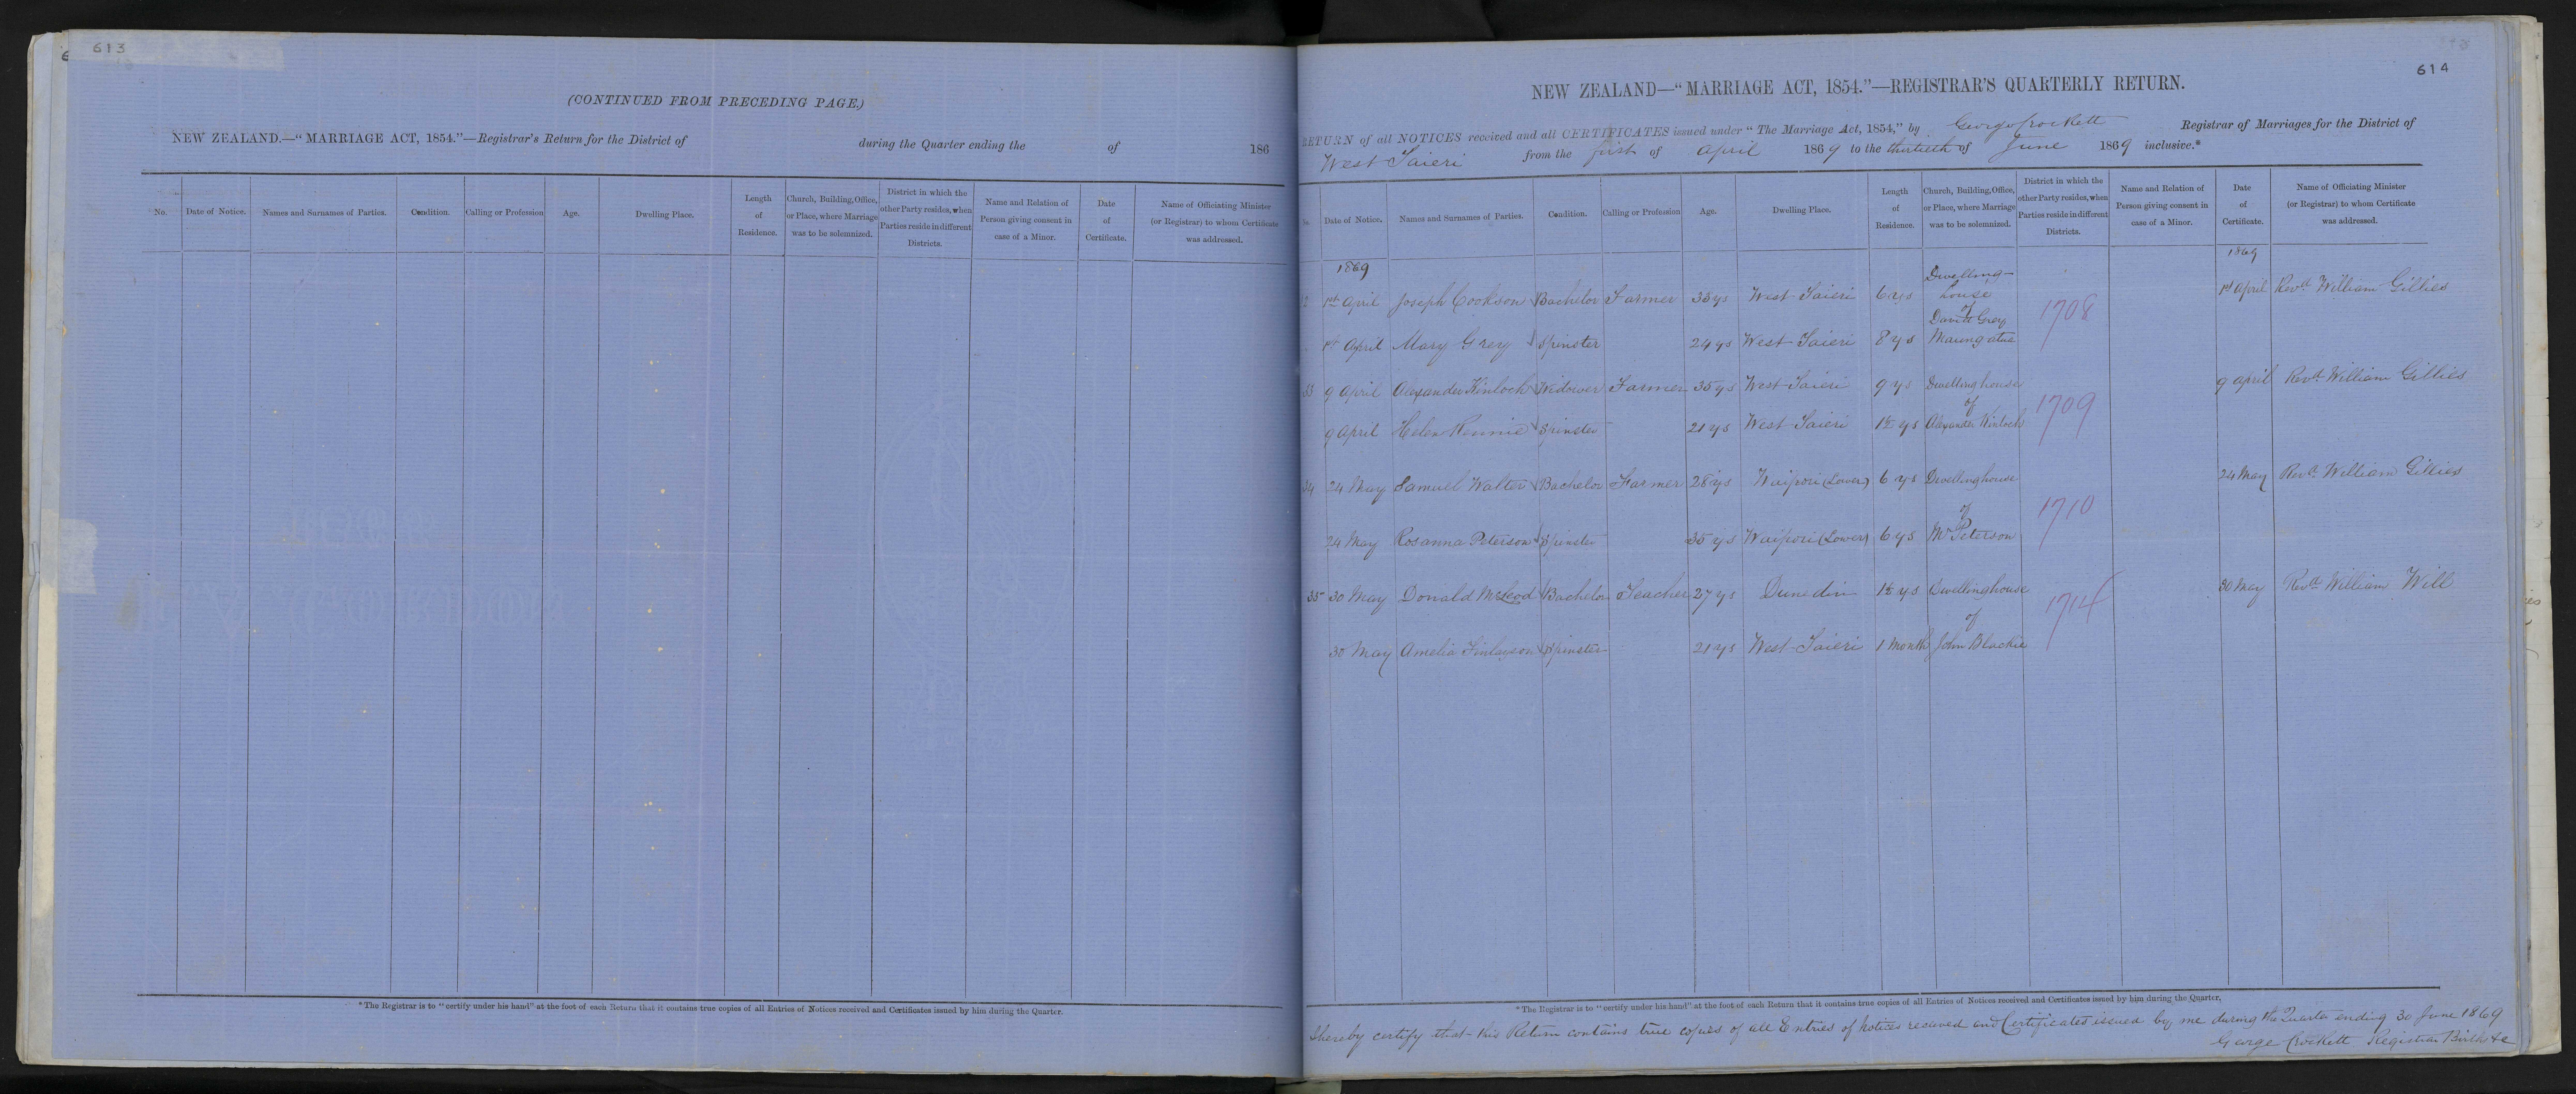 613
(CONTINUED FROM PRECEDING PAGE.)
NEW ZEALAND.—"MARRIAGE ACT, 1854."—Registrar's Return for the District of during the Quarter ending the of 186
No. Date of Notice. Names and Surnames of Parties. Condition. Calling or Profession Age. Dwelling Place. Length of Residence. Church, Building, Office, or Place, where Marriage was to be solemnized. District in which the other Party resides, when Parties reside in different Districts. Name and Relation of Person giving consent in case of a Minor. Date of Certificate. Name of Officiating Minister (or Registrar) to whom Certificate was addressed.
*The Registrar is to "certify under his hand" at the foot of each Return that it contains true copies of all Entries of Notices received and Certificates issued by him during the Quarter.
614
NEW ZEALAND—"MARRIAGE ACT, 1854."—REGISTRAR'S QUARTERLY RETURN.
RETURN of all NOTICES received and all CERTIFICATES issued under "The Marriage Act, 1854," by George Crockett Registrar of Marriages for the District of
West Taieri from the first of April 1869 to the thirtieth of June 1869 inclusive.*
No. Date of Notice. Names and Surnames of Parties. Condition. Calling or Profession Age. Dwelling Place. Length of Residence. Church, Building, Office, or Place, where Marriage was to be solemnized. District in which the other Party resides, when Parties reside in different Districts. Name and Relation of Person giving consent in case of a Minor. Date of Certificate. Name of Officiating Minister (or Registrar) to whom Certificate was addressed.
1869 1869
2 1st April Joseph Cookson Bachelor Farmer 35 ys West Taieri 6 ys Dwelling-house of 1708 1st April Revd William Gillies
1st April Mary Grey Spinster 24 ys West Taieri 8 ys David Grey Maungatua
33 9 April Alexander Kinloch Widower Farmer 35 ys West Taieri 9 ys Dwelling house of 1709 9 April Revd William Gillies
9 April Helen Rennie Spinster 21 ys West Taieri 1½ ys Alexander Kinloch
34 24 May Samuel Walter Bachelor Farmer 28 ys Waipori (Lower) 6 ys Dwelling house of 1710 24 May Revd William Gillies
24 May Rosanna Peterson Spinster 35 ys Waipori (Lower) 6 ys Mr Peterson
35 30 May Donald McLeod Bachelor Teacher 27 ys Dunedin 1½ ys Dwellinghouse of 1714 30 May Revd William Will
30 May Amelia Finlayson Spinster 21 ys West Taieri 1 Month John Blackie
*The Registrar is to "certify under his hand" at the foot of each Return that it contains true copies of all Entries of Notices received and Certificates issued by him during the Quarter.
I hereby certify that this Return contains true copies of all Entries of Notices received and Certificates issued by me during the Quarter ending 30 June 1869
George Crockett Registrar Births &c